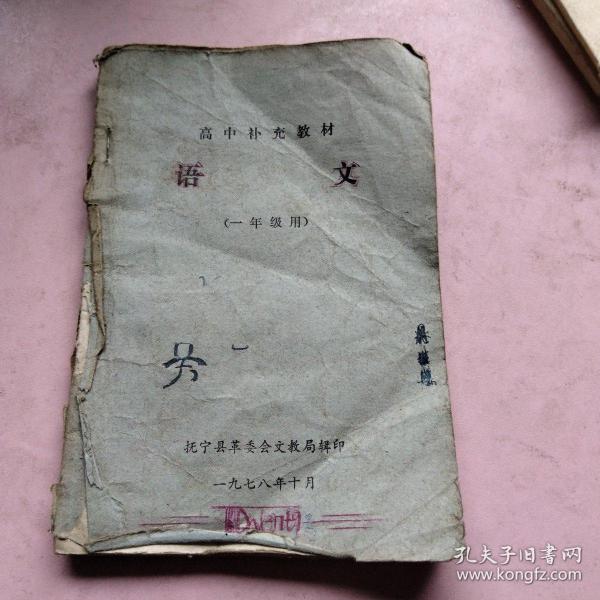 高中补充教材
语文
（一年级用）
抚宁县革委会文教局辑印
一九七八年十月
孔夫子旧书网
www.kongfz.com